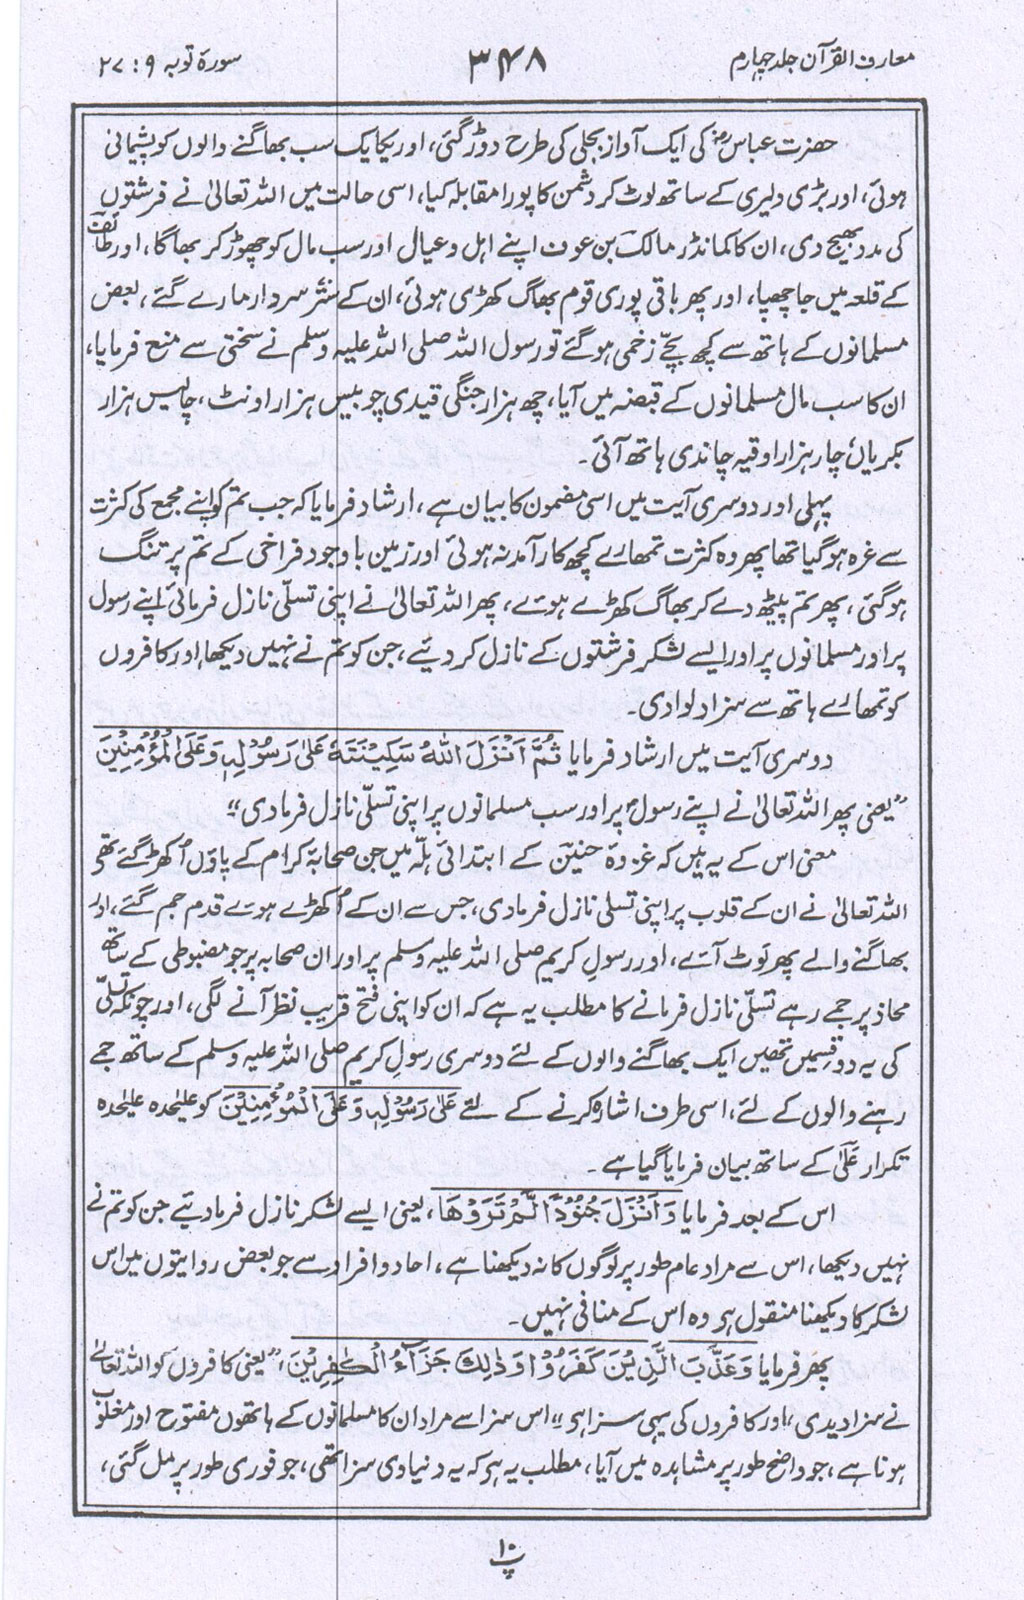 معارف القرآن جلد چہارم
۳۴۸
سورۃ توبہ ۹ : ۲۷
حضرت عباسؓ کی ایک آواز بجلی کی طرح دوڑ گئی، اور یکایک سب بھاگنے والوں کو پشیمانی
ہوئی، اور بڑی دلیری کے ساتھ لوٹ کر دشمن کا پورا مقابلہ کیا، اسی حالت میں اللہ تعالیٰ نے فرشتوں
کی مدد بھیج دی، ان کا کمانڈر مالک بن عوف اپنے اہل و عیال اور سب مال کو چھوڑ کر بھاگا، اور طائف
کے قلعہ میں جا چھپا، اور پھر باقی پوری قوم بھاگ کھڑی ہوئی، ان کے ستّر سردار مارے گئے، بعض
مسلمانوں کے ہاتھ سے کچھ بچّے زخمی ہو گئے تو رسول اللہ صلی اللہ علیہ وسلم نے سختی سے منع فرمایا،
ان کا سب مال مسلمانوں کے قبضہ میں آیا، چھ ہزار جنگی قیدی چوبیس ہزار اونٹ، چالیس ہزار
بکریاں چار ہزار اوقیہ چاندی ہاتھ آئی۔
پہلی اور دوسری آیت میں اسی مضمون کا بیان ہے، ارشاد فرمایا کہ جب تم کو اپنے مجمع کی کثرت
سے غرہ ہو گیا تھا پھر وہ کثرت تمھارے کچھ کارآمد نہ ہوئی اور زمین باوجود فراخی کے تم پر تنگ
ہو گئی، پھر تم پیٹھ دے کر بھاگ کھڑے ہوئے، پھر اللہ تعالیٰ نے اپنی تسلّی نازل فرمائی اپنے رسول
پر اور مسلمانوں پر اور ایسے لشکر فرشتوں کے نازل کر دیئے، جن کو تم نے نہیں دیکھا، اور کافروں
کو تمھارے ہاتھ سے سزا دلوا دی۔
دوسری آیت میں ارشاد فرمایا ثُمَّ اَنْزَلَ اللّٰهُ سَكِيْنَتَهٗ عَلٰى رَسُوْلِهٖ وَعَلَى الْمُؤْمِنِيْنَ
”یعنی پھر اللہ تعالیٰ نے اپنے رسولؐ پر اور سب مسلمانوں پر اپنی تسلّی نازل فرما دی“
معنی اس کے یہ ہیں کہ غزوۂ حنین کے ابتدائی ہلّہ میں جن صحابۂ کرام کے پاؤں اُکھڑ گئے تھے
اللہ تعالیٰ نے ان کے قلوب پر اپنی تسلی نازل فرما دی، جس سے ان کے اُکھڑے ہوئے قدم جم گئے، اور
بھاگنے والے پھر لَوٹ آئے، اور رسولِ کریم صلی اللہ علیہ وسلم پر اور ان صحابہ پر جو مضبوطی کے ساتھ
محاذ پر جمے رہے تسلّی نازل فرمانے کا مطلب یہ ہے کہ ان کو اپنی فتح قریب نظر آنے لگی، اور چونکہ تسلّی
کی یہ دو قسمیں تھیں ایک بھاگنے والوں کے لئے دوسری رسول کریم صلی اللہ علیہ وسلم کے ساتھ جمے
رہنے والوں کے لئے، اسی طرف اشارہ کرنے کے لئے عَلٰى رَسُوْلِهٖ وَعَلَى الْمُؤْمِنِيْنَ کو علیٰحدہ علیٰحدہ
تکرار عَلٰی کے ساتھ بیان فرمایا گیا ہے۔
اس کے بعد فرمایا وَاَنْزَلَ جُنُوْدًا لَّمْ تَرَوْهَا، یعنی ایسے لشکر نازل فرما دیئے جن کو تم نے
نہیں دیکھا، اس سے مراد عام طور پر لوگوں کا نہ دیکھنا ہے، احاد و افراد سے جو بعض روایتوں میں اس
لشکر کا دیکھنا منقول ہو وہ اس کے منافی نہیں۔
پھر فرمایا وَعَذَّبَ الَّذِيْنَ كَفَرُوْا وَذٰلِكَ جَزَآءُ الْكٰفِرِيْنَ، ”یعنی کافروں کو اللہ تعالےٰ
نے سزا دیدی، اور کافروں کی یہی سزا ہو“ اس سزا سے مراد ان کا مسلمانوں کے ہاتھوں مفتوح اور مغلوب
ہونا ہے، جو واضح طور پر مشاہدہ میں آیا، مطلب یہ ہو کہ یہ دنیاوی سزا تھی، جو فوری طور پر مل گئی،
پ۱۰